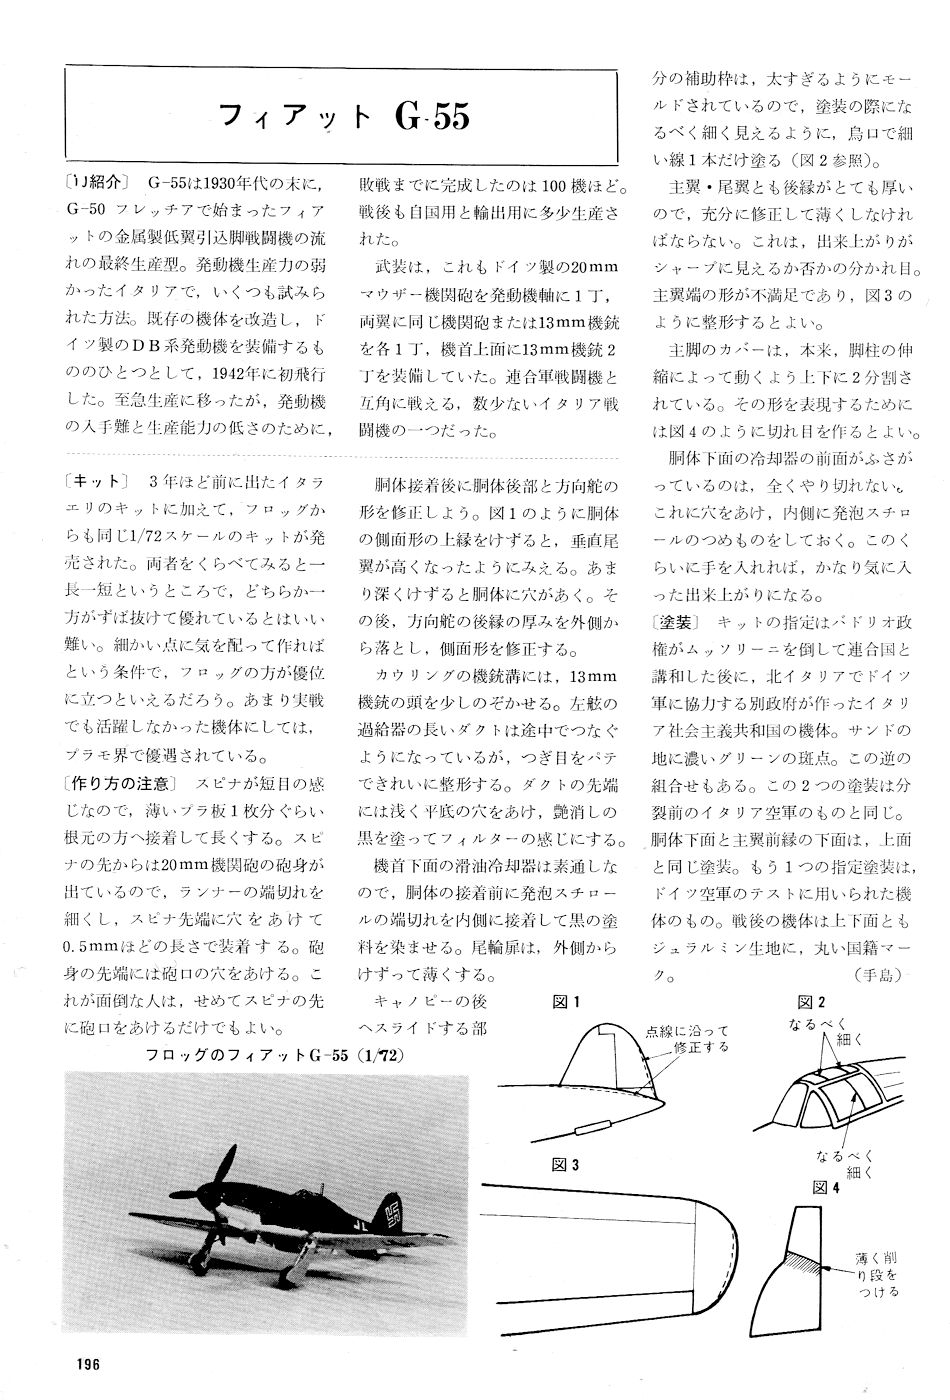 フィアット G-55
紹介〕 G-55は1930年代の末に,
G-50 フレッチアで始まったフィア
ットの金属製低翼引込脚戦闘機の流
れの最終生産型。発動機生産力の弱
かったイタリアで, いくつも試みら
れた方法。既存の機体を改造し, ド
イツ製のDB系発動機を装備するも
ののひとつとして, 1942年に初飛行
した。至急生産に移ったが, 発動機
の入手難と生産能力の低さのために,
敗戦までに完成したのは 100 機ほど。
戦後も自国用と輸出用に多少生産さ
れた。
武装は, これもドイツ製の20mm
マウザー機関砲を発動機軸に1丁,
両翼に同じ機関砲または13mm機銃
を各1丁, 機首上面に13mm機銃2
丁を装備していた。連合軍戦闘機と
互角に戦える, 数少ないイタリア戦
闘機の一つだった。
〔キット〕 3年ほど前に出たイタラ
エリのキットに加えて, フロッグか
らも同じ1/72スケールのキットが発
売された。両者をくらべてみると一
長一短というところで, どちらか一
方がずば抜けて優れているとはいい
難い。細かい点に気を配って作れば
という条件で, フロッグの方が優位
に立つといえるだろう。あまり実戦
でも活躍しなかった機体にしては,
プラモ界で優遇されている。
〔作り方の注意〕 スピナが短目の感
じなので, 薄いプラ板1枚分ぐらい
根元の方へ接着して長くする。スピ
ナの先からは20mm機関砲の砲身が
出ているので, ランナーの端切れを
細くし, スピナ先端に穴をあけて
0.5mmほどの長さで装着する。砲
身の先端には砲口の穴をあける。こ
れが面倒な人は, せめてスピナの先
に砲口をあけるだけでもよい。
胴体接着後に胴体後部と方向舵の
形を修正しよう。図1のように胴体
の側面形の上縁をけずると, 垂直尾
翼が高くなったようにみえる。あま
り深くけずると胴体に穴があく。そ
の後, 方向舵の後縁の厚みを外側か
ら落とし, 側面形を修正する。
カウリングの機銃溝には, 13mm
機銃の頭を少しのぞかせる。左舷の
過給器の長いダクトは途中でつなぐ
ようになっているが, つぎ目をパテ
できれいに整形する。ダクトの先端
には浅く平底の穴をあけ, 艶消しの
黒を塗ってフィルターの感じにする。
機首下面の滑油冷却器は素通しな
ので, 胴体の接着前に発泡スチロー
ルの端切れを内側に接着して黒の塗
料を染ませる。尾輪扉は, 外側から
けずって薄くする。
キャノピーの後
へスライドする部
分の補助枠は, 太すぎるようにモー
ルドされているので, 塗装の際にな
るべく細く見えるように, 烏口で細
い線1本だけ塗る(図2参照)。
主翼・尾翼とも後縁がとても厚い
ので, 充分に修正して薄くしなけれ
ばならない。これは, 出来上がりが
シャープに見えるか否かの分かれ目。
主翼端の形が不満足であり, 図3の
ように整形するとよい。
主脚のカバーは, 本来, 脚柱の伸
縮によって動くよう上下に2分割さ
れている。その形を表現するために
は図4のように切れ目を作るとよい。
胴体下面の冷却器の前面がふさが
っているのは, 全くやり切れない。
これに穴をあけ, 内側に発泡スチロ
ールのつめものをしておく。このく
らいに手を入れれば, かなり気に入
った出来上がりになる。
〔塗装〕 キットの指定はバドリオ政
権がムッソリーニを倒して連合国と
講和した後に, 北イタリアでドイツ
軍に協力する別政府が作ったイタリ
ア社会主義共和国の機体。サンドの
地に濃いグリーンの斑点。この逆の
組合せもある。この2つの塗装は分
裂前のイタリア空軍のものと同じ。
胴体下面と主翼前縁の下面は, 上面
と同じ塗装。もう1つの指定塗装は,
ドイツ空軍のテストに用いられた機
体のもの。戦後の機体は上下面とも
ジュラルミン生地に, 丸い国籍マー
ク。 (手島)
フロッグのフィアットG-55 (1/72)
図1
点線に沿って
修正する
図2
なるべく
細く
なるべく
細く
図3
図4
薄く削
り段を
つける
196